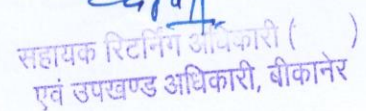 सहायक रिटर्निग अधिकारी (     )
एवं उपखण्ड अधिकारी, बीकानेर